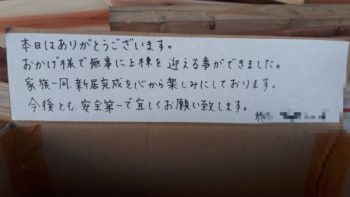 本日はありがとうございます。
おかげ様で無事に上棟を迎える事ができました。
家族一同、新居完成を心から楽しみにしております。
今後とも、安全第一で宜しくお願い致します。